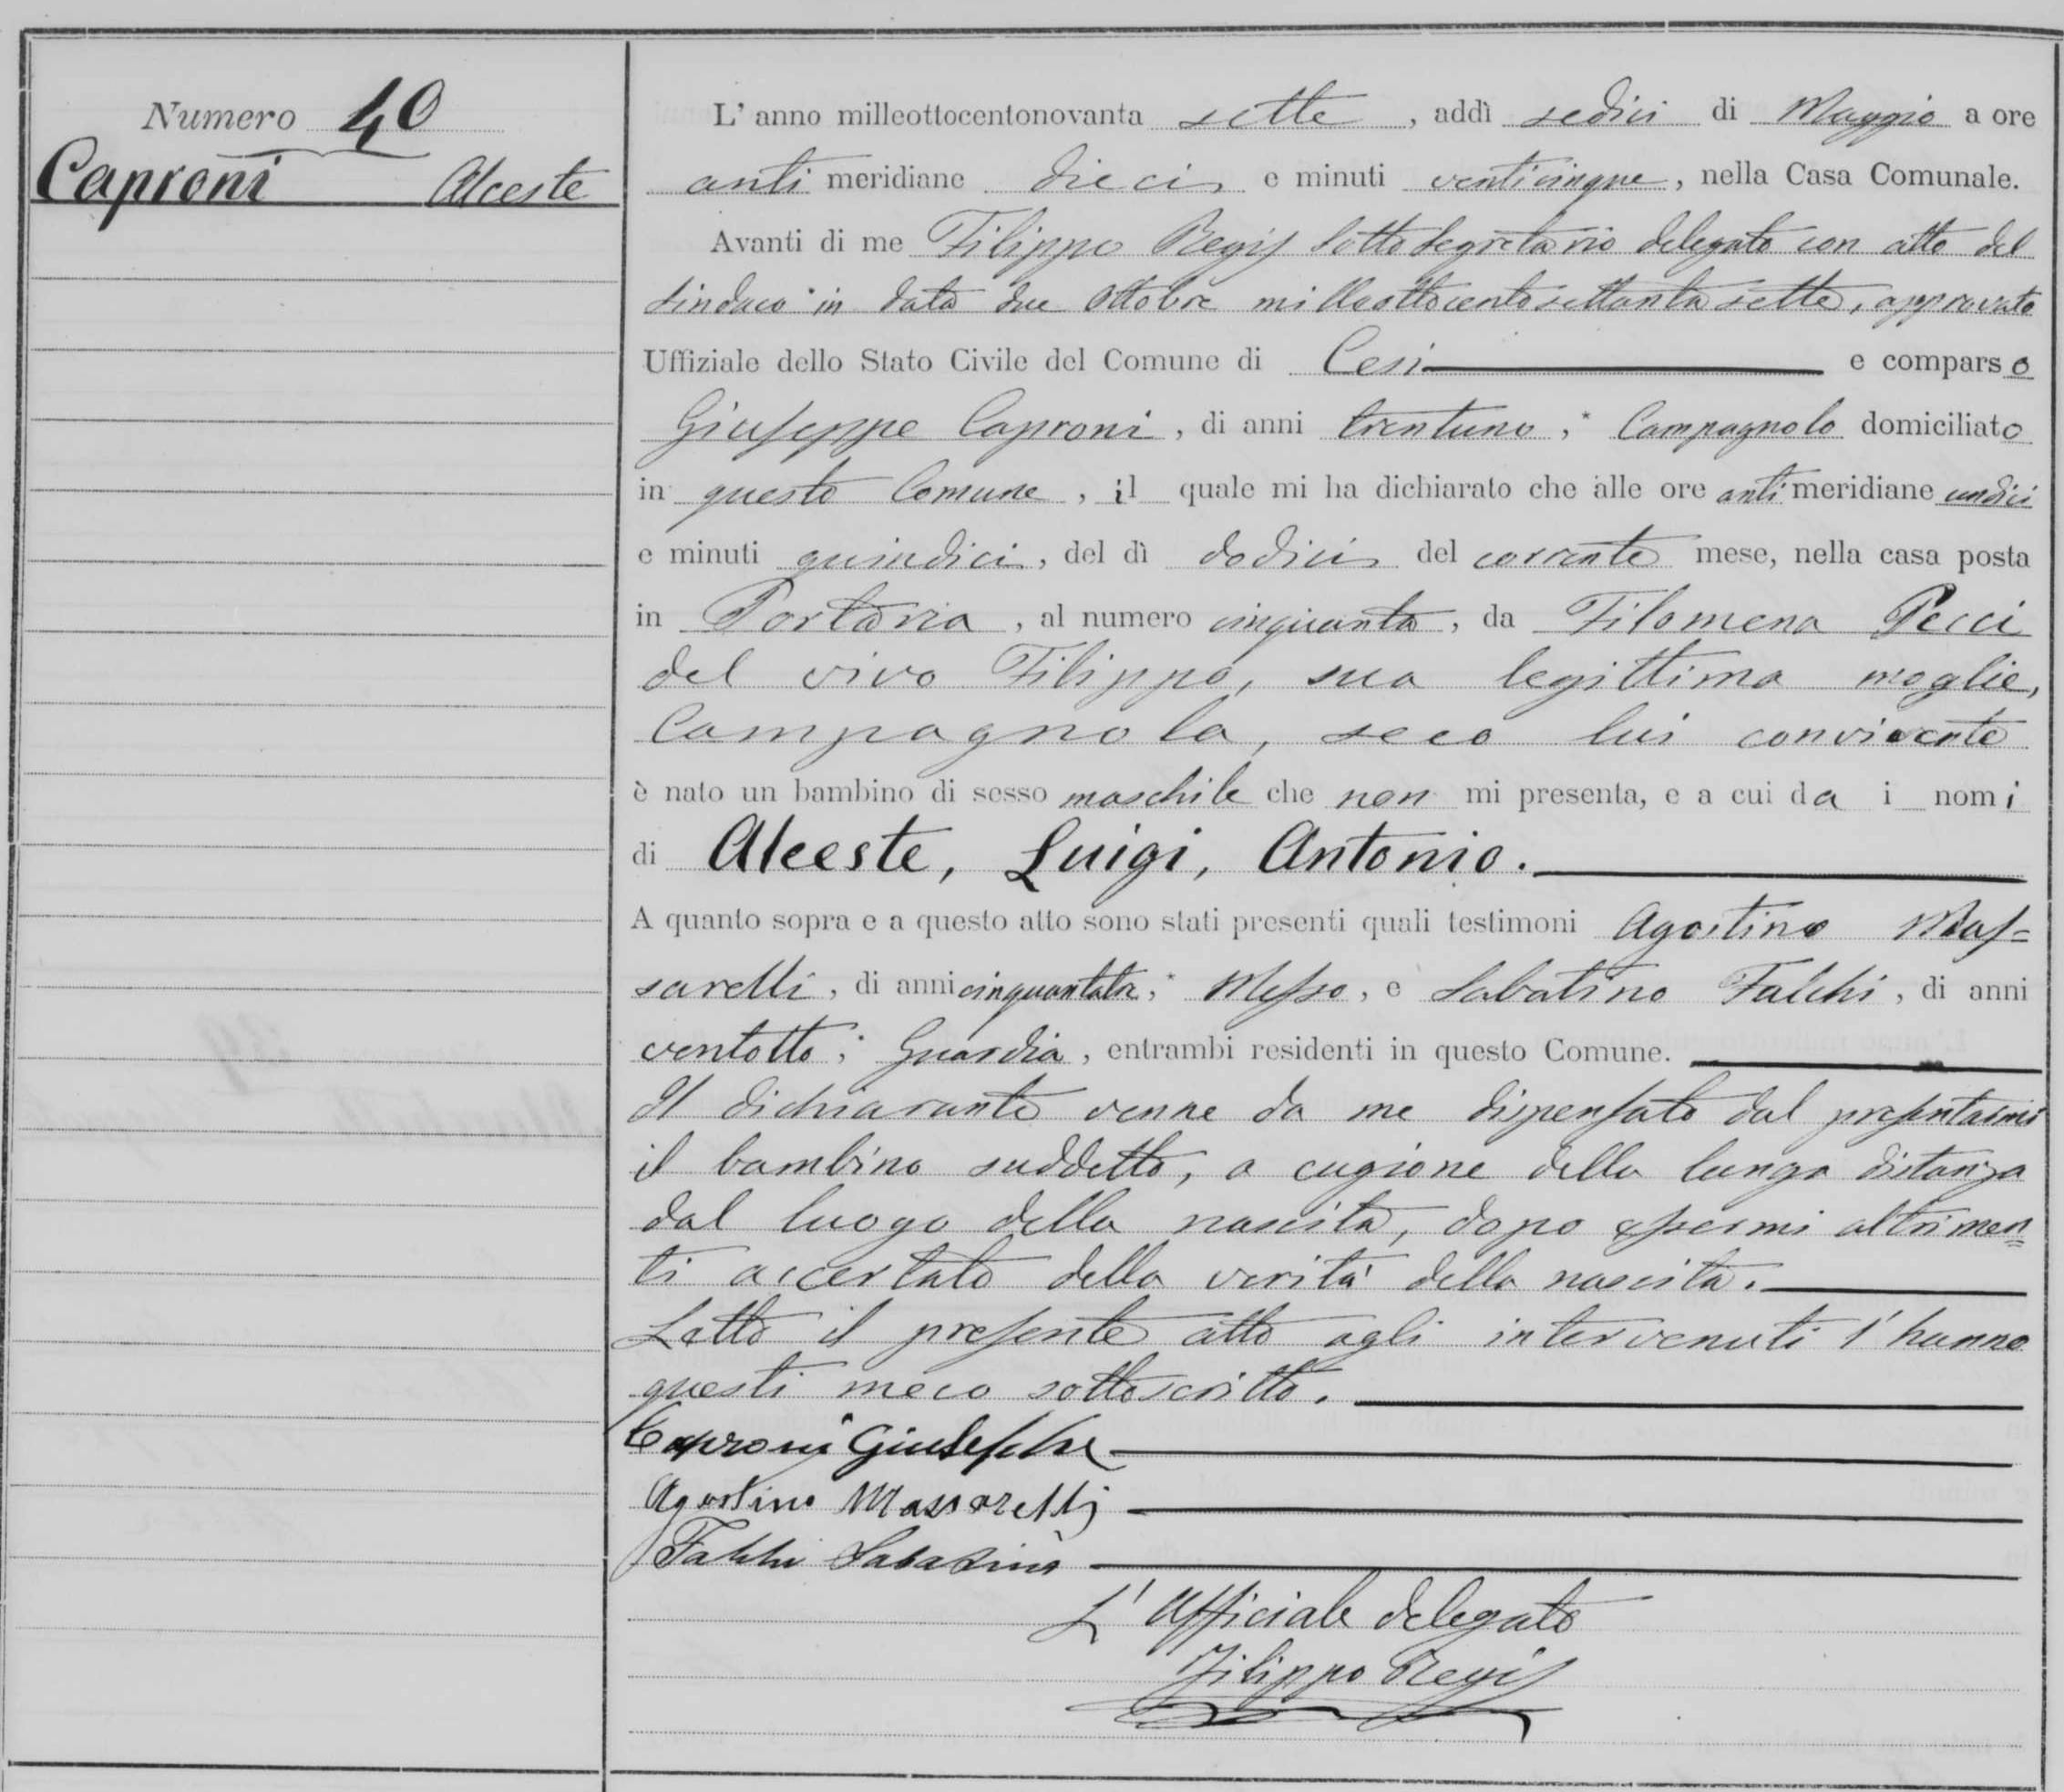 Numero 40
Caproni Alceste
L'anno milleottocentonovanta sette, addì sedici di Maggio a ore
anti meridiane dieci e minuti venticinque, nella Casa Comunale.
Avanti di me Filippo Regis Sotto Segretario delegato con atto del
Sindaco in data due Ottobre milleottocentosettantasette, approvato
Uffiziale dello Stato Civile del Comune di Cesi e comparso
Giuseppe Caproni, di anni trentuno, Campagnolo domiciliato
in questo Comune, il quale mi ha dichiarato che alle ore anti meridiane undici
e minuti quindici, del dì dodici del corrente mese, nella casa posta
in Portaria, al numero cinquanta, da Filomena Pecci
del vivo Filippo, sua legittima moglie,
Campagnola, seco lui convivente
è nato un bambino di sesso maschile che non mi presenta, e a cui da i nomi
di Alceste, Luigi, Antonio.
A quanto sopra e a questo atto sono stati presenti quali testimoni Agostino Mas=
sarelli, di anni cinquantatre, Messo, e Sabatino Falchi, di anni
ventotto, Guardia, entrambi residenti in questo Comune.
Il dichiarante venne da me dispensato dal presentarmi
il bambino suddetto, a cagione della lunga distanza
dal luogo della nascita, dopo essermi altrimen=
ti accertato della verità della nascita.
Letto il presente atto agli intervenuti l'hanno
questi meco sottoscritto.
Caproni Giuseppe
Agostino Massarelli
Falchi Sabatino
L'Ufficiale delegato
Filippo Regis